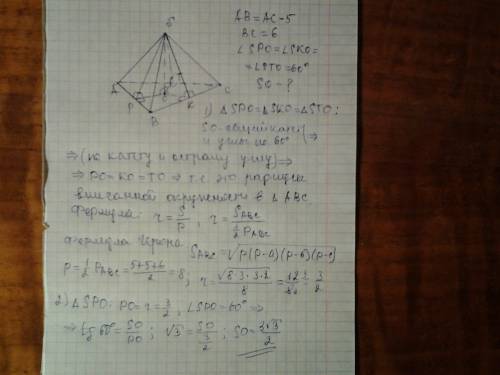 S
A
P
B
K
C
O
AB = AC = 5
BC = 6
∠SPO = ∠SKO =
= ∠STO = 60°
SO - ?
1) △SPO = △SKO = △STO:
SO - общий катет
и углы по 60° | ⇒
⇒ (по катету и острому углу) ⇒
⇒ PO = KO = TO ⇒ т.е. это радиусы
вписанной окружности в △ABC.
Формула: r = S/p, r = S_ABC / (1/2 P_ABC)
Формула Герона: S_ABC = √p(p-a)(p-b)(p-c)
p = 1/2 P_ABC = (5+5+6)/2 = 8; r = √(8·3·3·2)/8 = 12/8 = 3/2
2) △SPO: PO = r = 3/2, ∠SPO = 60° ⇒
⇒ tg 60° = SO/PO; √3 = SO/(3/2); SO = 3√3/2